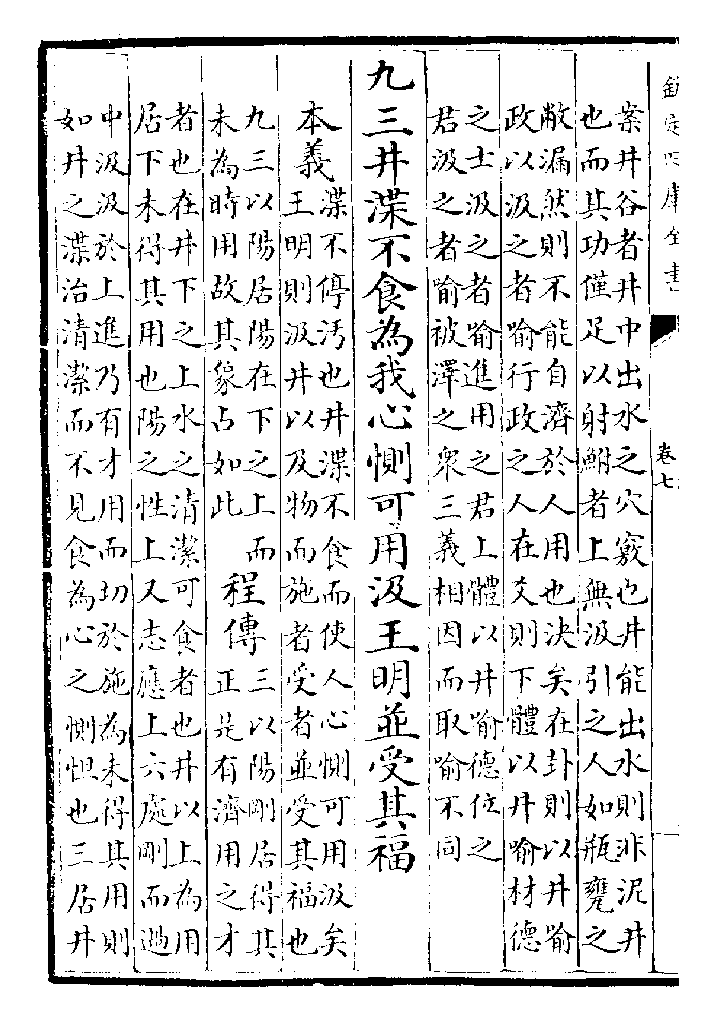 欽定四庫全書
卷七
案井谷者井中出水之穴竅也井能出水則非泥井
也而其功僅足以射鮒者上無汲引之人如瓶甕之
敝漏然則不能自濟於人用也決矣在卦則以井喻
政以汲之者喻行政之人在爻則下體以井喻材德
之士汲之者喻進用之君上體以井喻德位之
君汲之者喻被澤之衆三義相因而取喻不同
九三井渫不食為我心惻可用汲王明並受其福
本義
渫不停汚也井渫不食而使人心惻可用汲矣
王明則汲井以及物而施者受者並受其福也
九三以陽居陽在下之上而
未為時用故其象占如此
程傳
三以陽剛居得其
正是有濟用之才
者也在井下之上水之清潔可食者也井以上為用
居下未得其用也陽之性上又志應上六處剛而過
中汲汲於上進乃有才用而切於施為未得其用則
如井之渫治清潔而不見食為心之惻怛也三居井